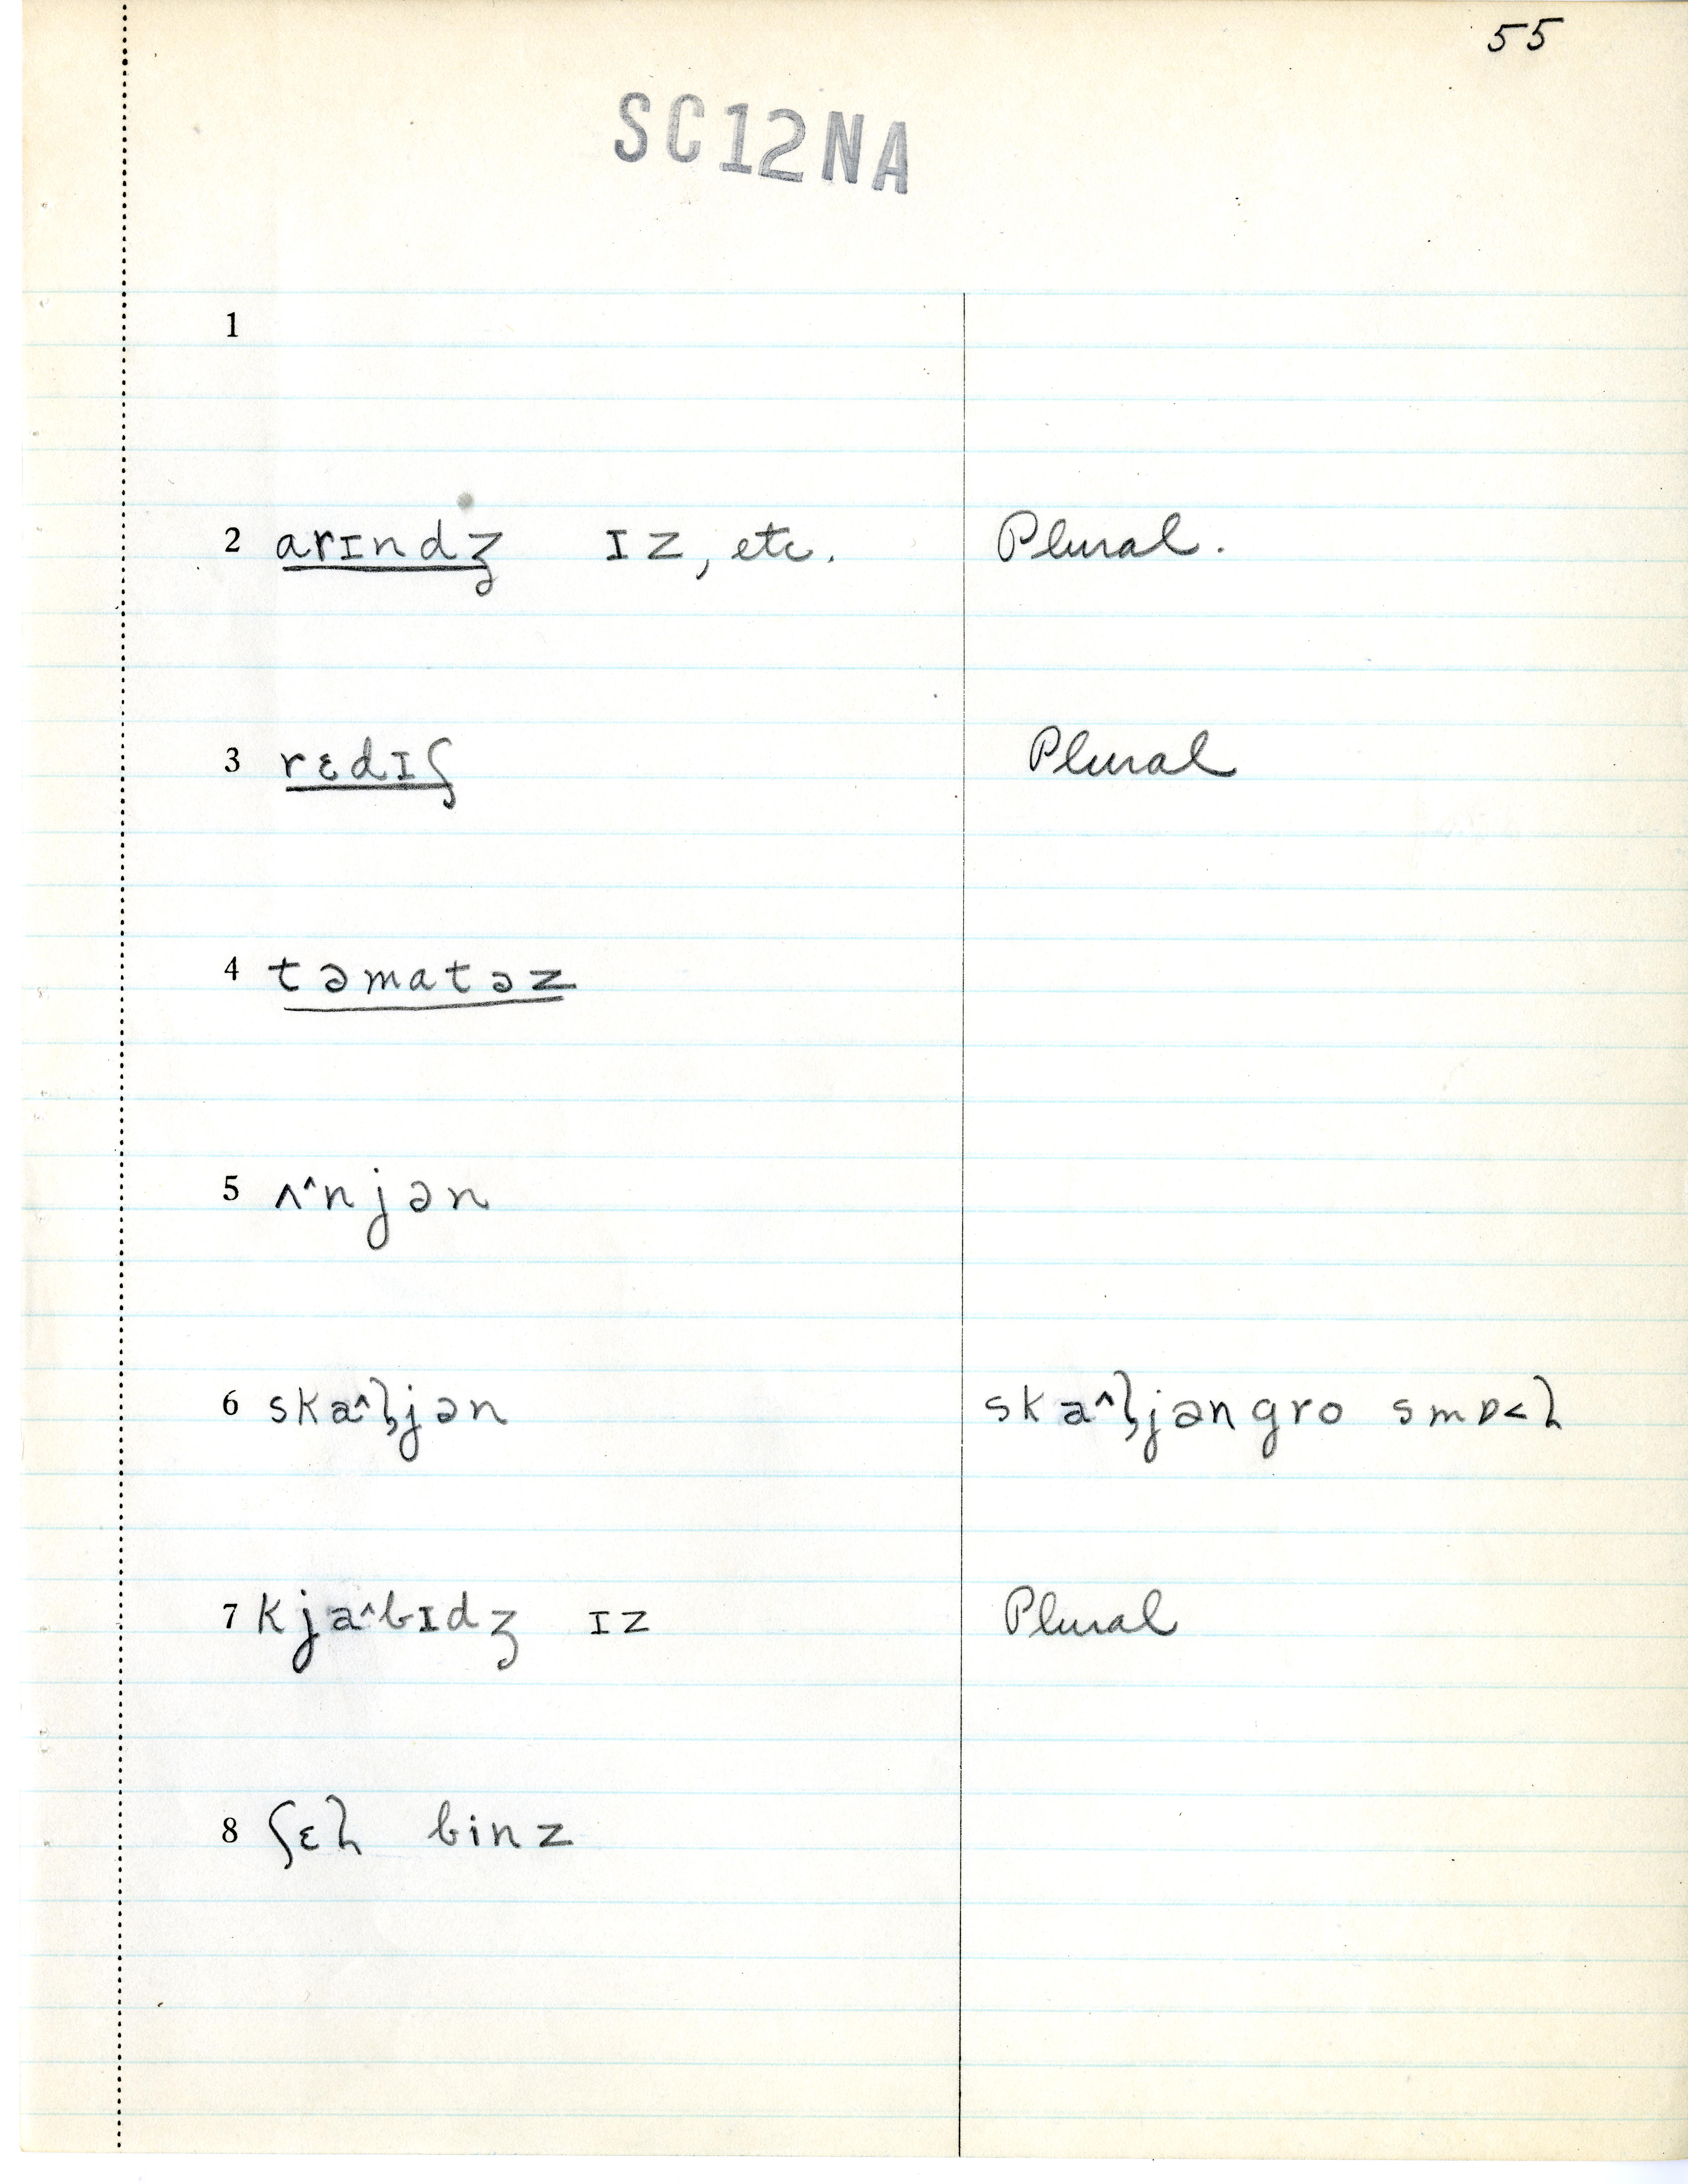 55
SC12NA
1
2 arɪndʒ ɪz, etc. Plural.
3 rɛdɪʃ Plural
4 təmatəz
5 ʌ^njən
6 ska^ɫjən ska^ɫjən gro smɒ˂l
7 kja^bɪdʒ ɪz Plural
8 ʃɛl binz